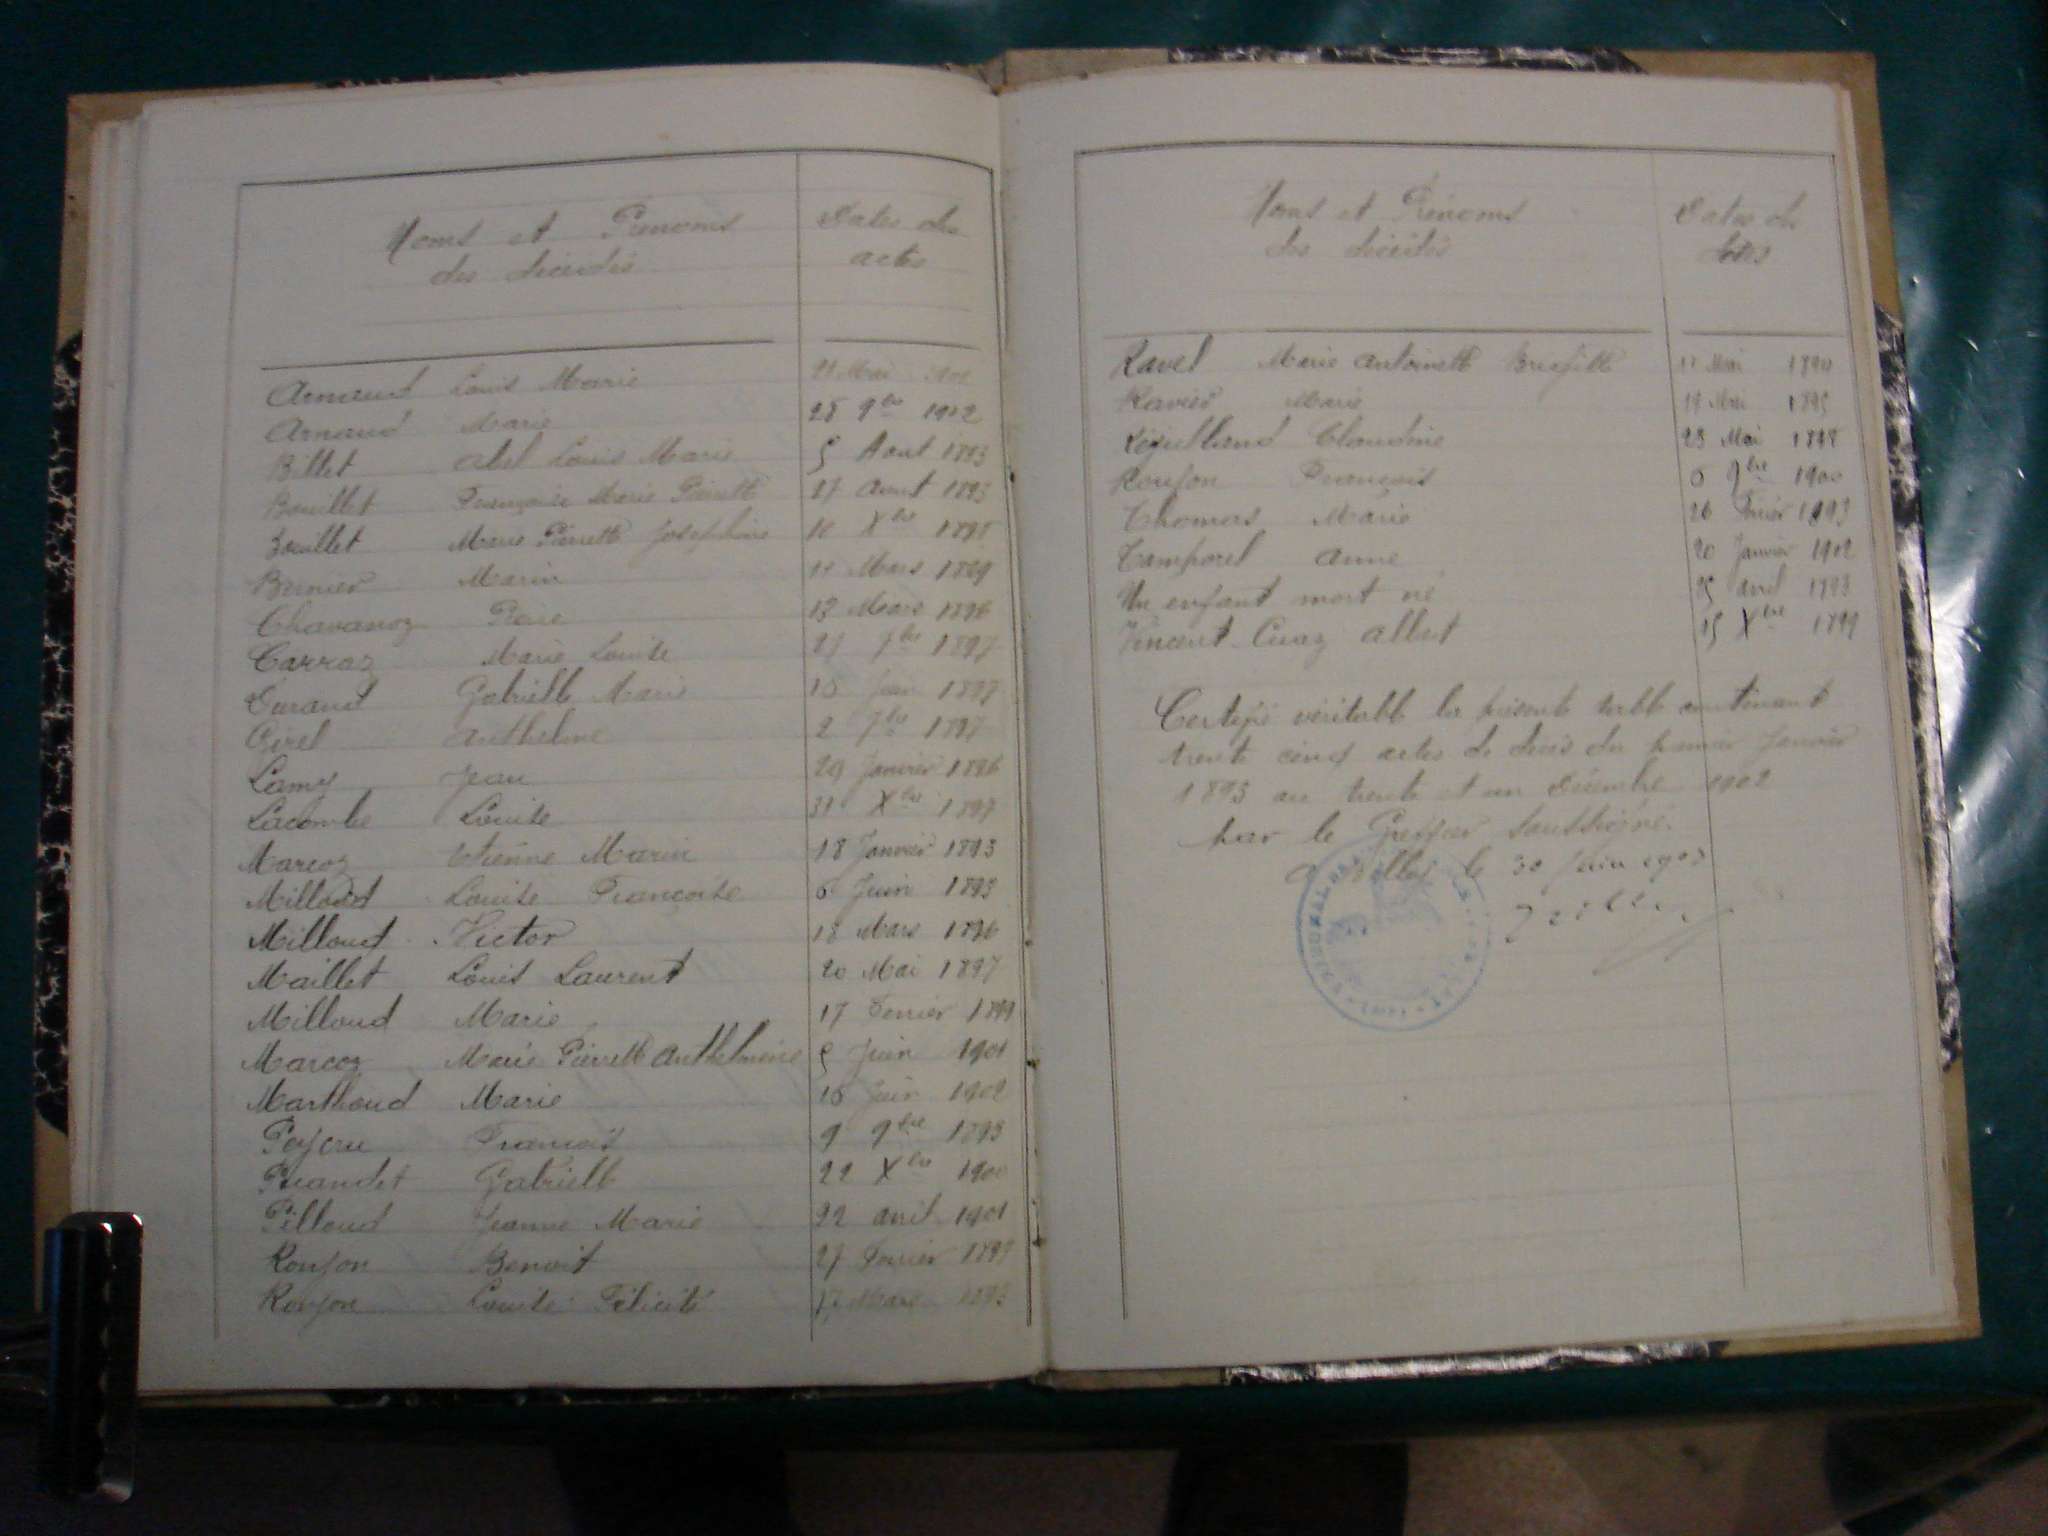 Noms et Prénoms
des décédés
Dates des
actes
Arnaud Louis Marie 21 Mai
Arnaud Marie 28 9bre 1902
Billet Abel Louis Marie 5 Aout 1893
Bouillet Françoise Marie Pierrette 27 Aout 1893
Bouillet Marie Pierrette Josephine 10 Xbre 1895
Bernier Marin 11 Mars 1899
Chavanoz Pierre 13 Mars 1896
Carraz Marie Louise 7bre 1897
Durand Gabrielle Marie Juin 1897
Girel Anthelme 2 7bre 1897
Lamy Jean 29 Janvier 1896
Lacombe Louise 31 Xbre 1897
Marcoz Etienne Marin 18 Janvier 1893
Milloud Louise Françoise 6 Juin 1893
Milloud Victor 18 Mars 1896
Maillet Louis Laurent 20 Mai 1897
Milloud Marie 17 Fevrier 1899
Marcoz Marie Pierrette Anthelmine Juin 1901
Marthoud Marie 16 Juin 1902
François 9 9bre 1893
Gabrielle 22 Xbre 1900
Pilloud Jeanne Marie 22 avril 1901
Roujon Benoit 27 Fevrier
Roujon Louise Félicité 17 Mars
Noms et Prénoms
des décédés
Dates des
actes
Ravel Marie Antoinette Mai
Ravier Marie Mai 1895
Claudine 23 Mai 1898
Roujon François 6 9bre 1900
Thomas Marie 26 Février 1893
Tamporel Anne 20 Janvier 1902
Un enfant mort né 25 avril 1893
Vincent-Cuaz Albert 15 Xbre 1899
Certifié véritable la présente table contenant
trente cinq actes de décès du premier Janvier
1893 au trente et un Décembre 1902
par le Greffier soussigné.
le 30 Juin 1903
TRIBUNAL